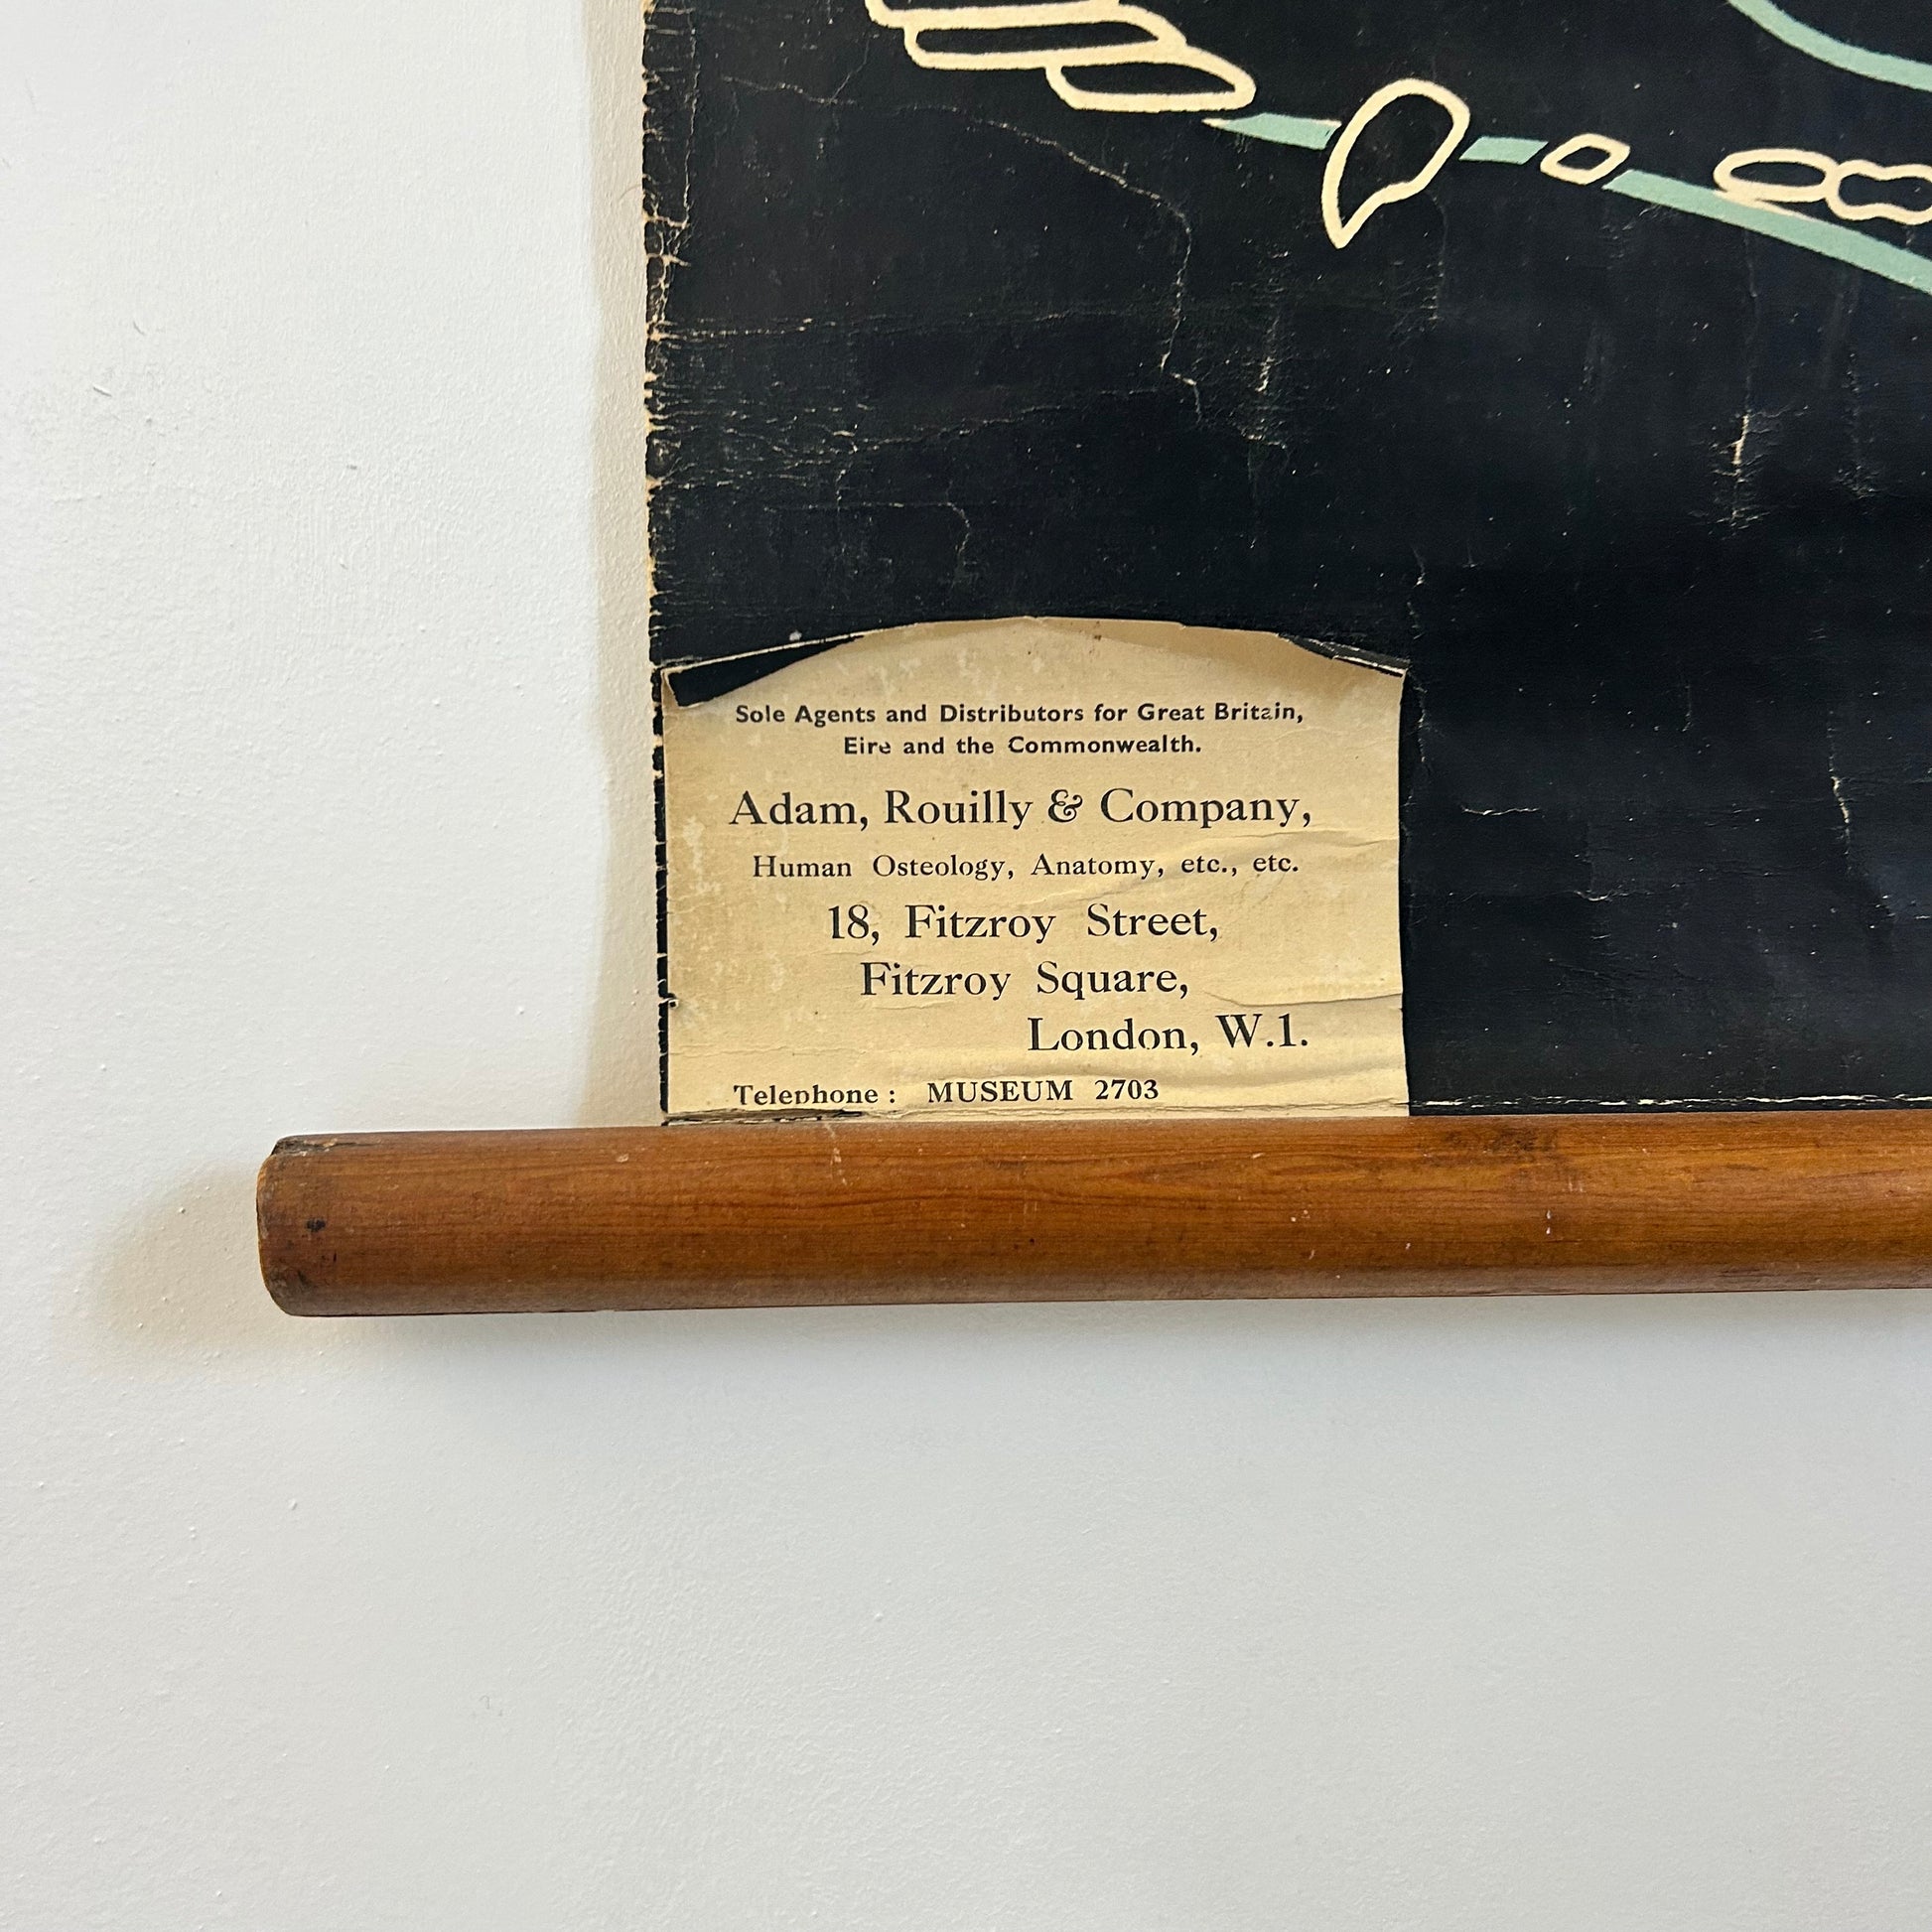 Sole Agents and Distributors for Great Britain,
Eire and the Commonwealth.
Adam, Rouilly & Company,
Human Osteology, Anatomy, etc., etc.
18, Fitzroy Street,
Fitzroy Square,
London, W.1.
Telephone : MUSEUM 2703